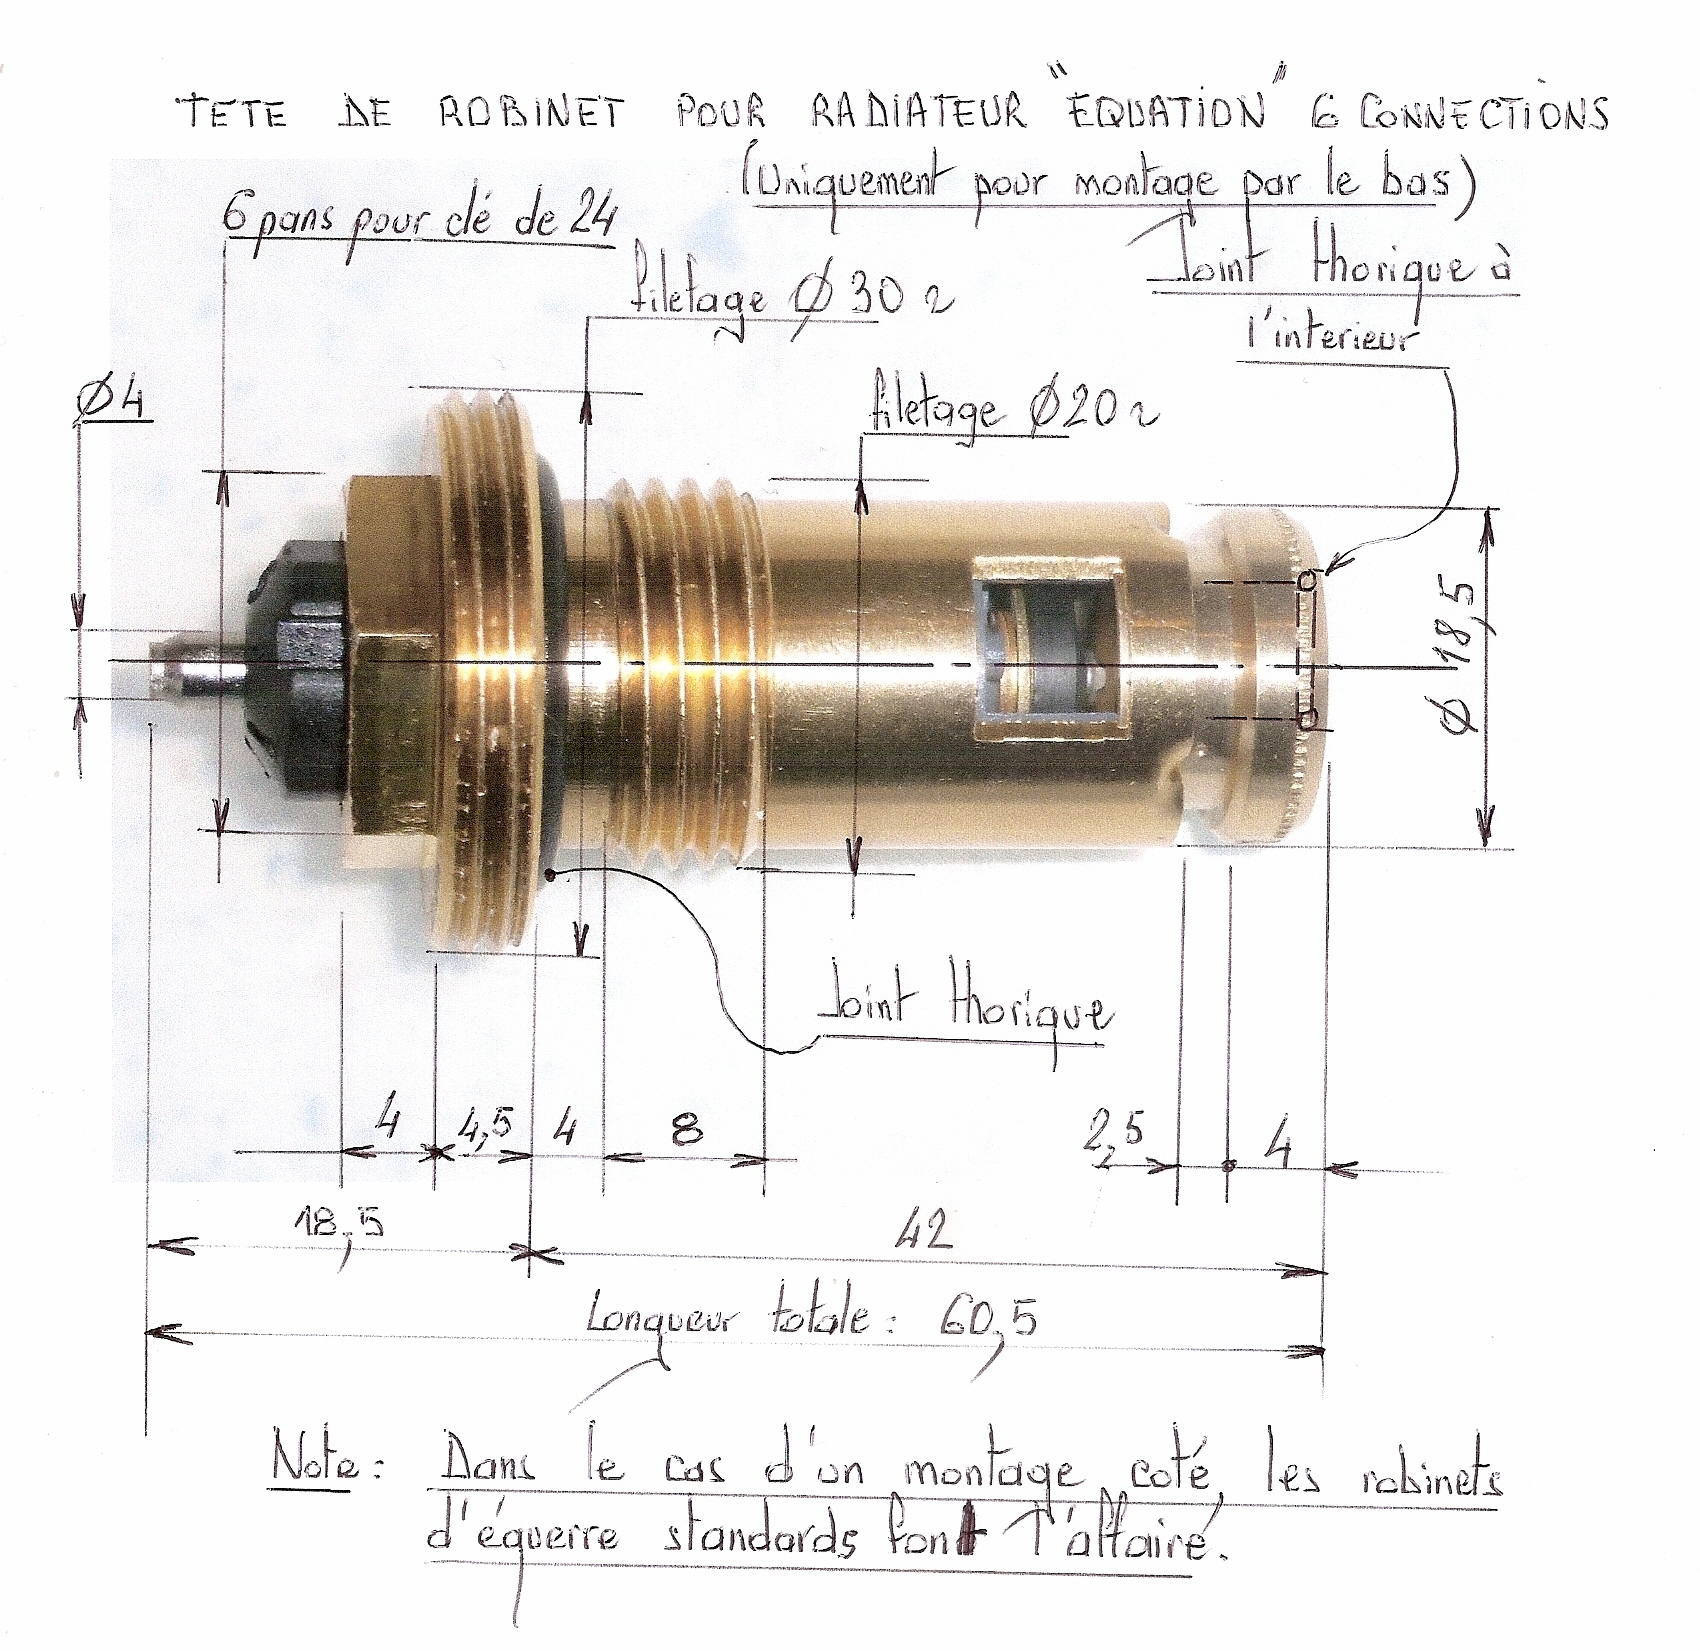 TETE DE ROBINET POUR RADIATEUR "EQUATION" 6 CONNECTIONS
(Uniquement pour montage par le bas)
6 pans pour clé de 24
Joint thorique à
l'interieur
filetage Ø 30 ~
filetage Ø 20 ~
Ø4
Ø 18,5
Joint thorique
4
4,5
4
8
2,5
4
18,5
42
Longueur totale : 60,5
Note : Dans le cas d'un montage coté, les robinets
d'équerre standards font l'affaire.